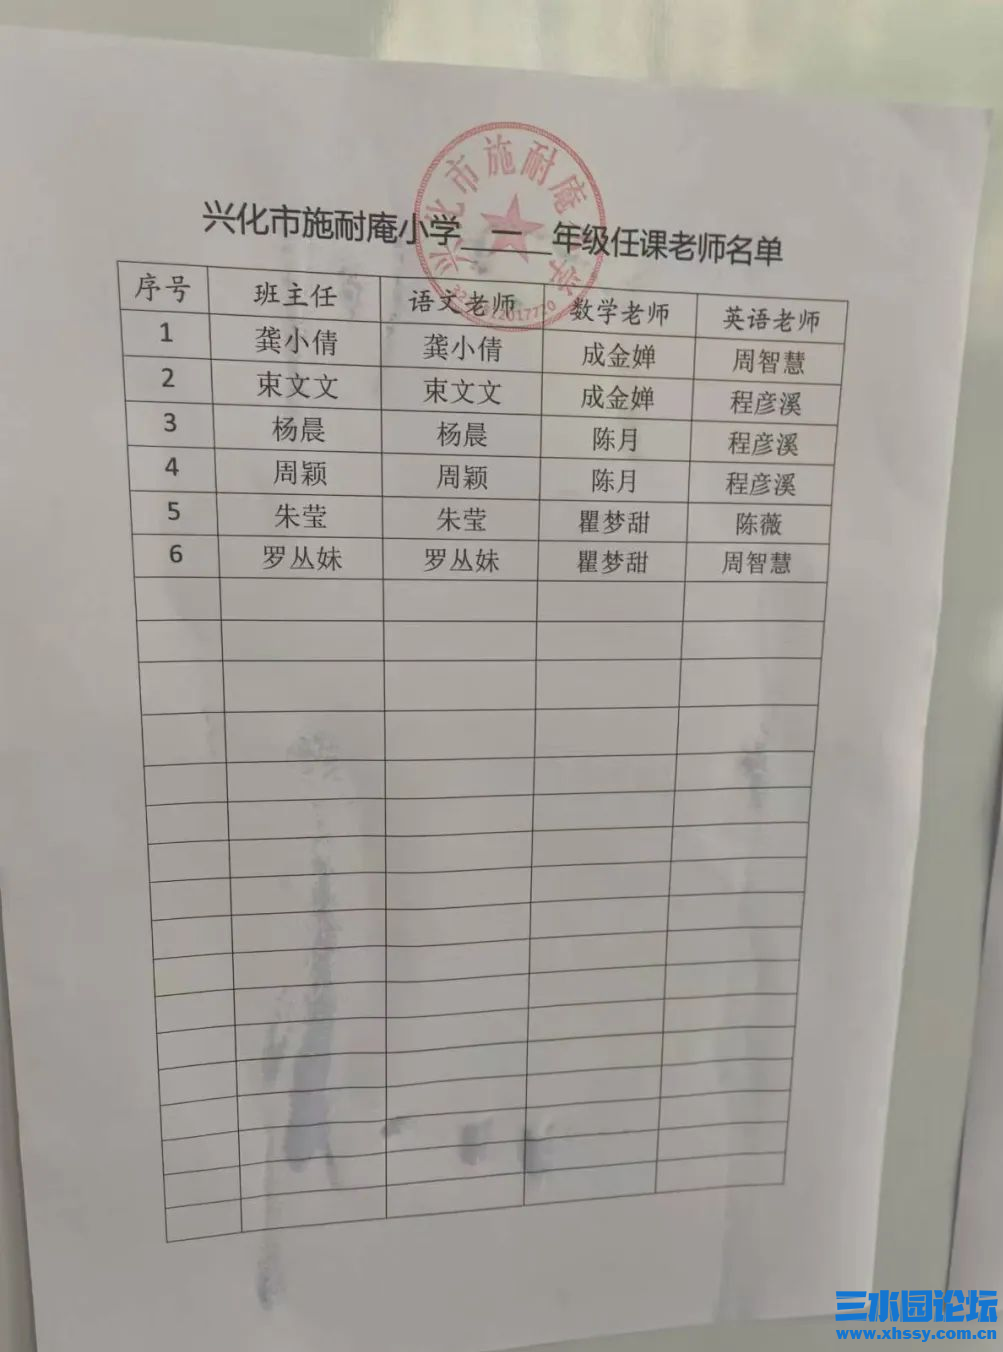 兴化市施耐庵小学
兴化市施耐庵小学 一 年级任课老师名单
序号 班主任 语文老师 数学老师 英语老师
1 龚小倩 龚小倩 成金婵 周智慧
2 束文文 束文文 成金婵 程彦溪
3 杨晨 杨晨 陈月 程彦溪
4 周颖 周颖 陈月 程彦溪
5 朱莹 朱莹 瞿梦甜 陈薇
6 罗丛妹 罗丛妹 瞿梦甜 周智慧
三水园论坛
www.xhssy.com.cn